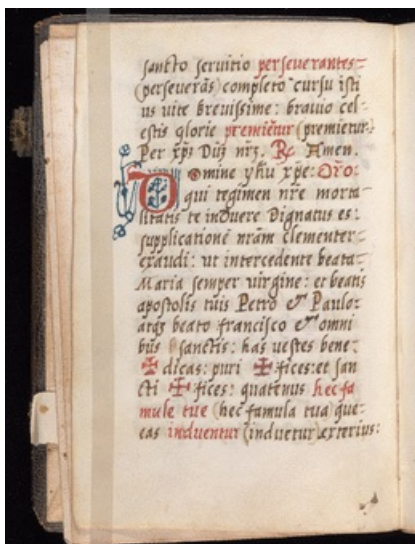 sancto servitio perseverantes
(perseverãs) completo cursu isti
us vite brevissime: bravio cel-
estis glorie premiẽtur (premietur)
Per xp̃z Dñz nr̃z. R̃ Amen.
Domine yh̃u xp̃e: Or̃o:
qui tegimen nr̃e morta-
litatis te induere Dignatus es:
supplicationẽ nr̃am clementer
exaudi: ut intercedente beata-
Maria semper virgine: et beatis
apostolis tuis Petro & Paulo:
atq3 beato francisco & omni
bus sanctis: has vestes bene:
✠ dicas: puri ✠ fices: et san
cti ✠ fices: quatenus hec fa
mule tue (hec famula tua) que-
eas induentur (induetur) exterius: